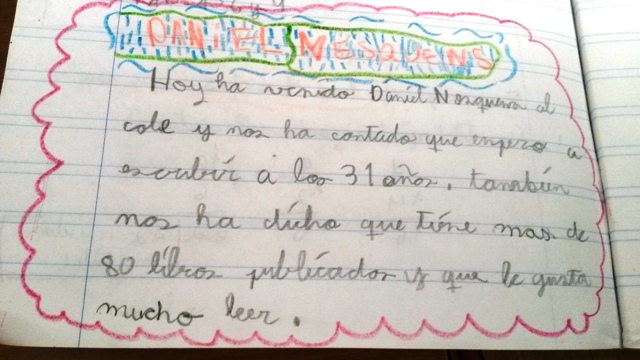 DANIEL NESQUENS
Hoy ha venido Daniel Nesquens al
cole y nos ha contado que empezo a
escribir a los 31 años. también
nos ha dicho que tiene mas de
80 libros publicados y que le gusta
mucho leer.